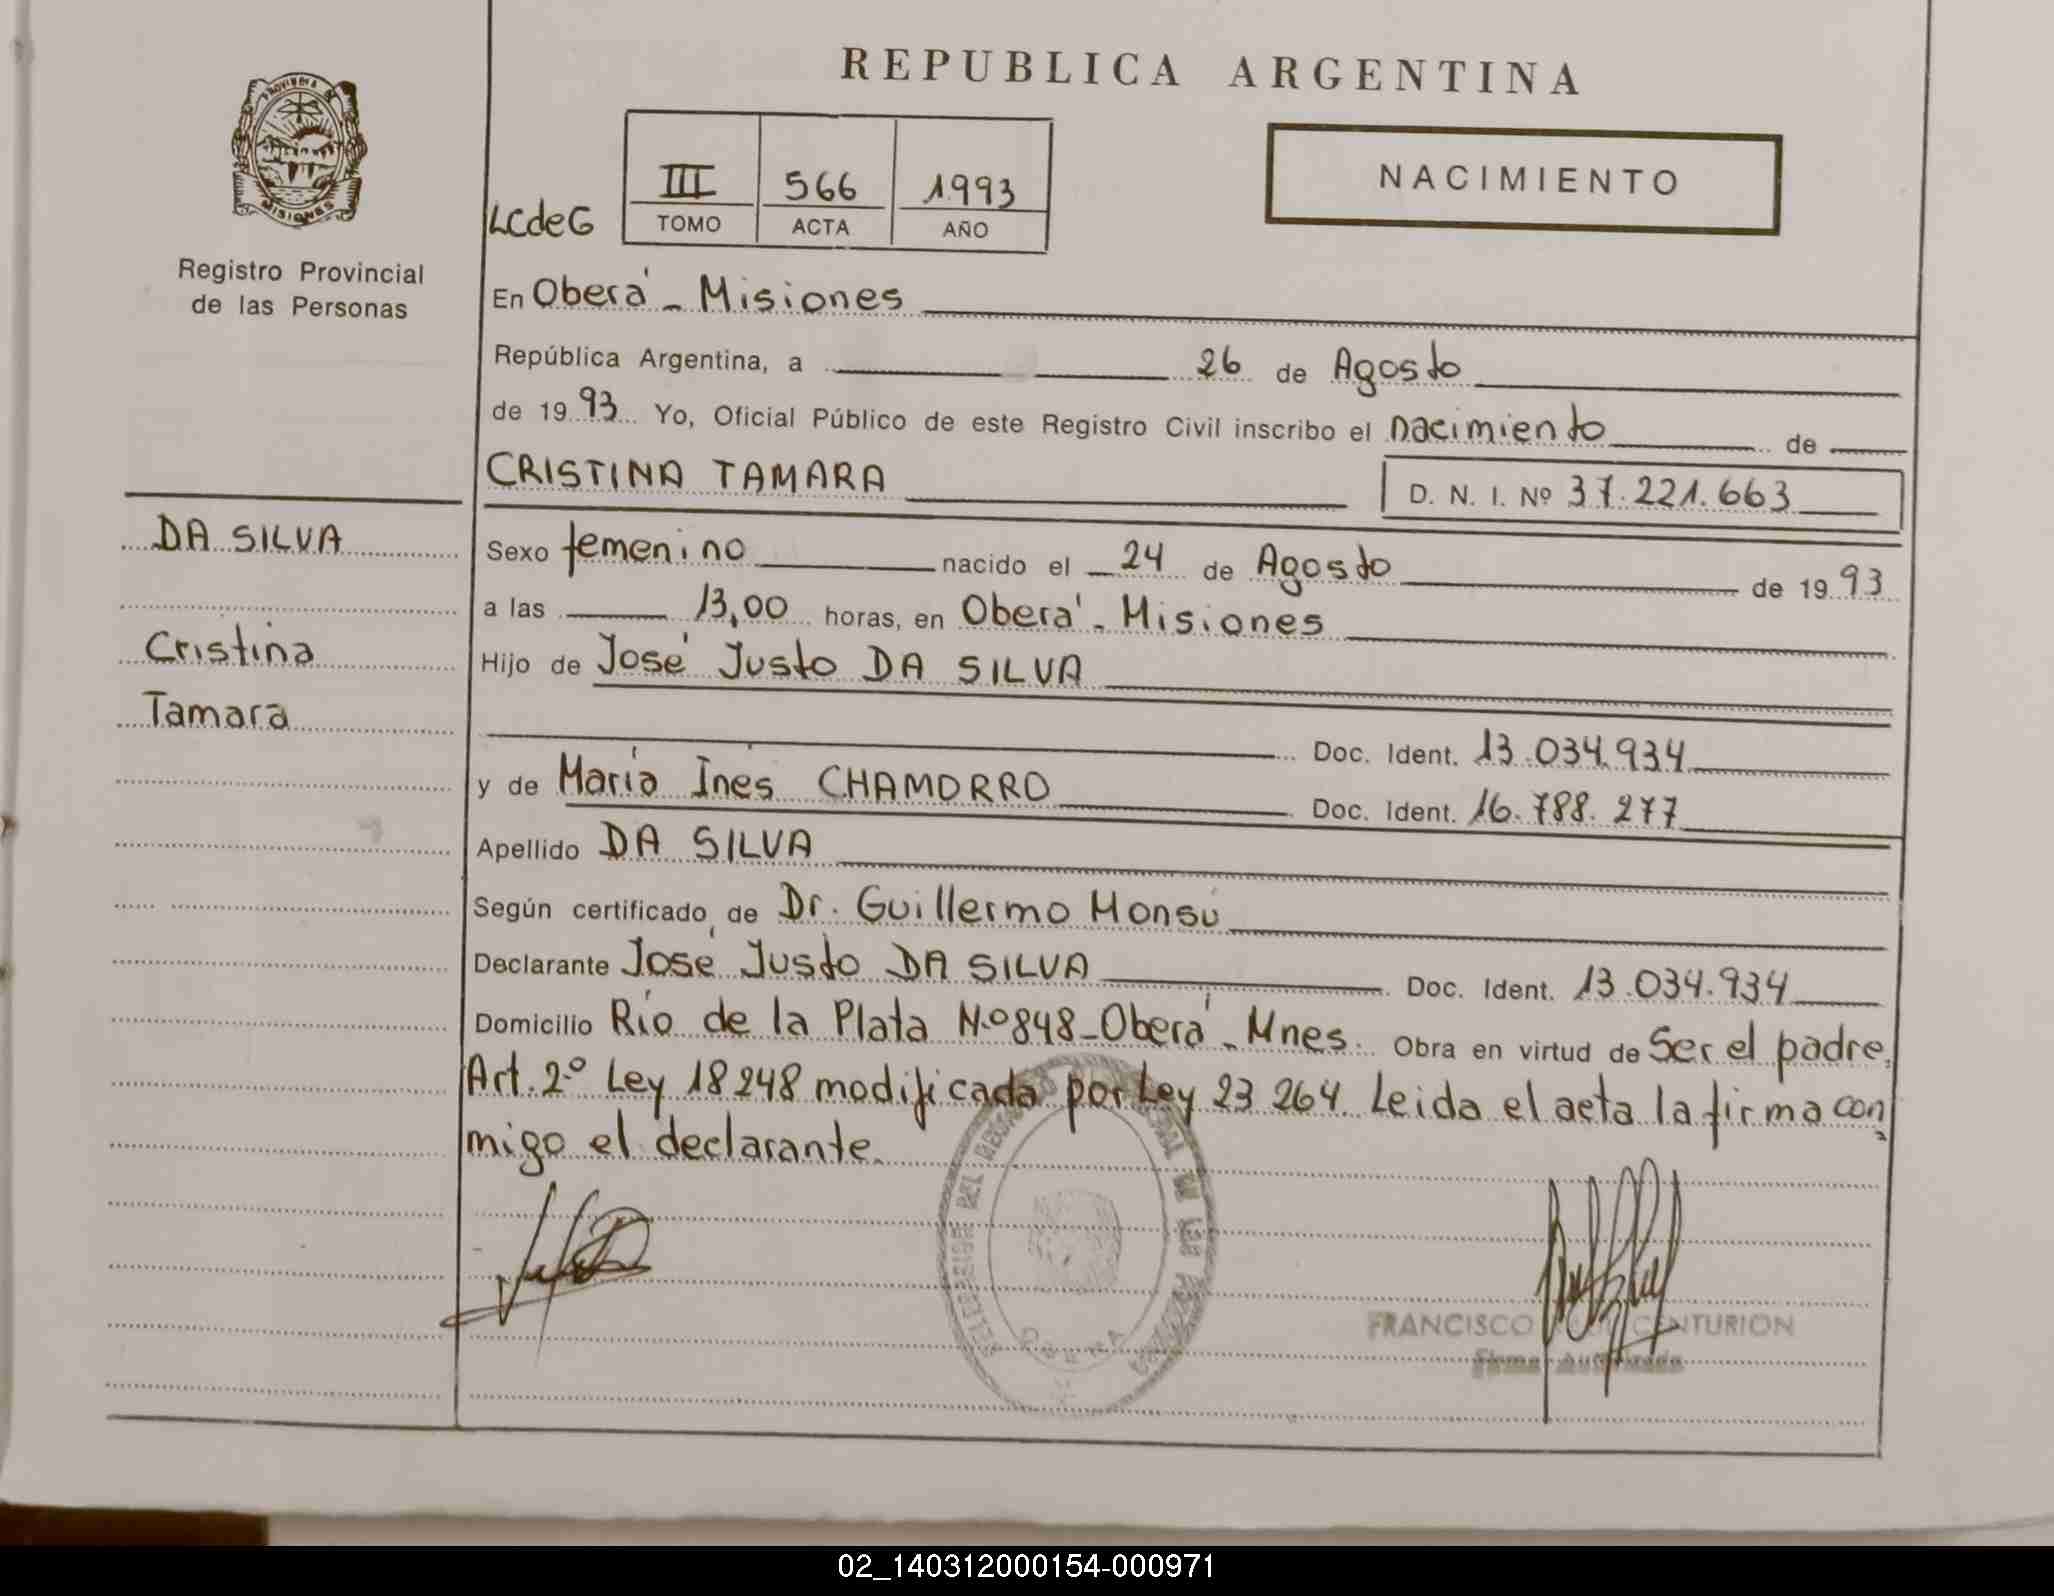 REPUBLICA ARGENTINA
PROVINCIA DE
MISIONES
Registro Provincial
de las Personas
LCdeG
III 566 1993
TOMO ACTA AÑO
NACIMIENTO
En Oberá - Misiones
República Argentina, a 26 de Agosto
de 1993 Yo, Oficial Público de este Registro Civil inscribo el nacimiento de
CRISTINA TAMARA D. N. I. Nº 37.221.663
DA SILVA
Cristina
Tamara
Sexo femenino nacido el 24 de Agosto de 1993
a las 13,00 horas, en Oberá - Misiones
Hijo de José Justo DA SILVA
Doc. Ident. 13.034.934
y de María Inés CHAMORRO Doc. Ident. 16.788.277
Apellido DA SILVA
Según certificado de Dr. Guillermo Monsú
Declarante José Justo DA SILVA Doc. Ident. 13.034.934
Domicilio Río de la Plata N.º 848 - Oberá - Mnes. Obra en virtud de Ser el padre.
Art. 2º Ley 18248 modificada por Ley 23264. Leida el acta la firma con
migo el declarante.
DEL REGISTRO PROVINCIAL DE LAS PERSONAS
OBERA
FRANCISCO CENTURION
Firma Autorizada
02_140312000154-000971